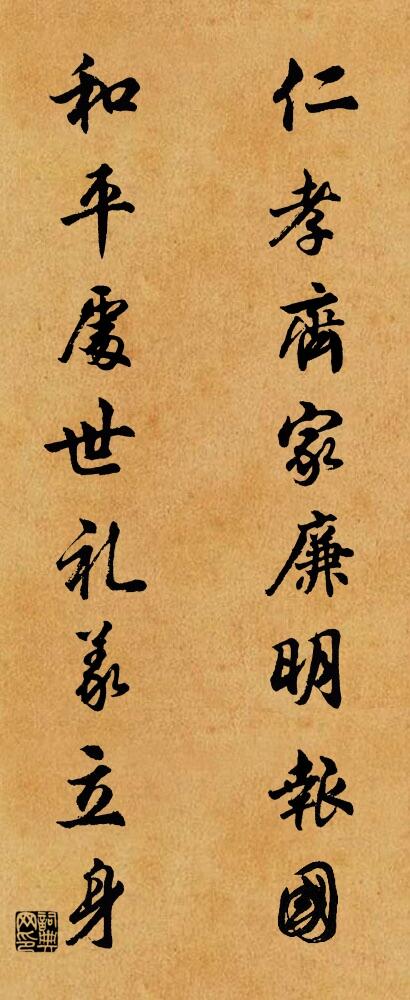 仁孝齊家廉明報國
和平處世礼義立身
詞典网印